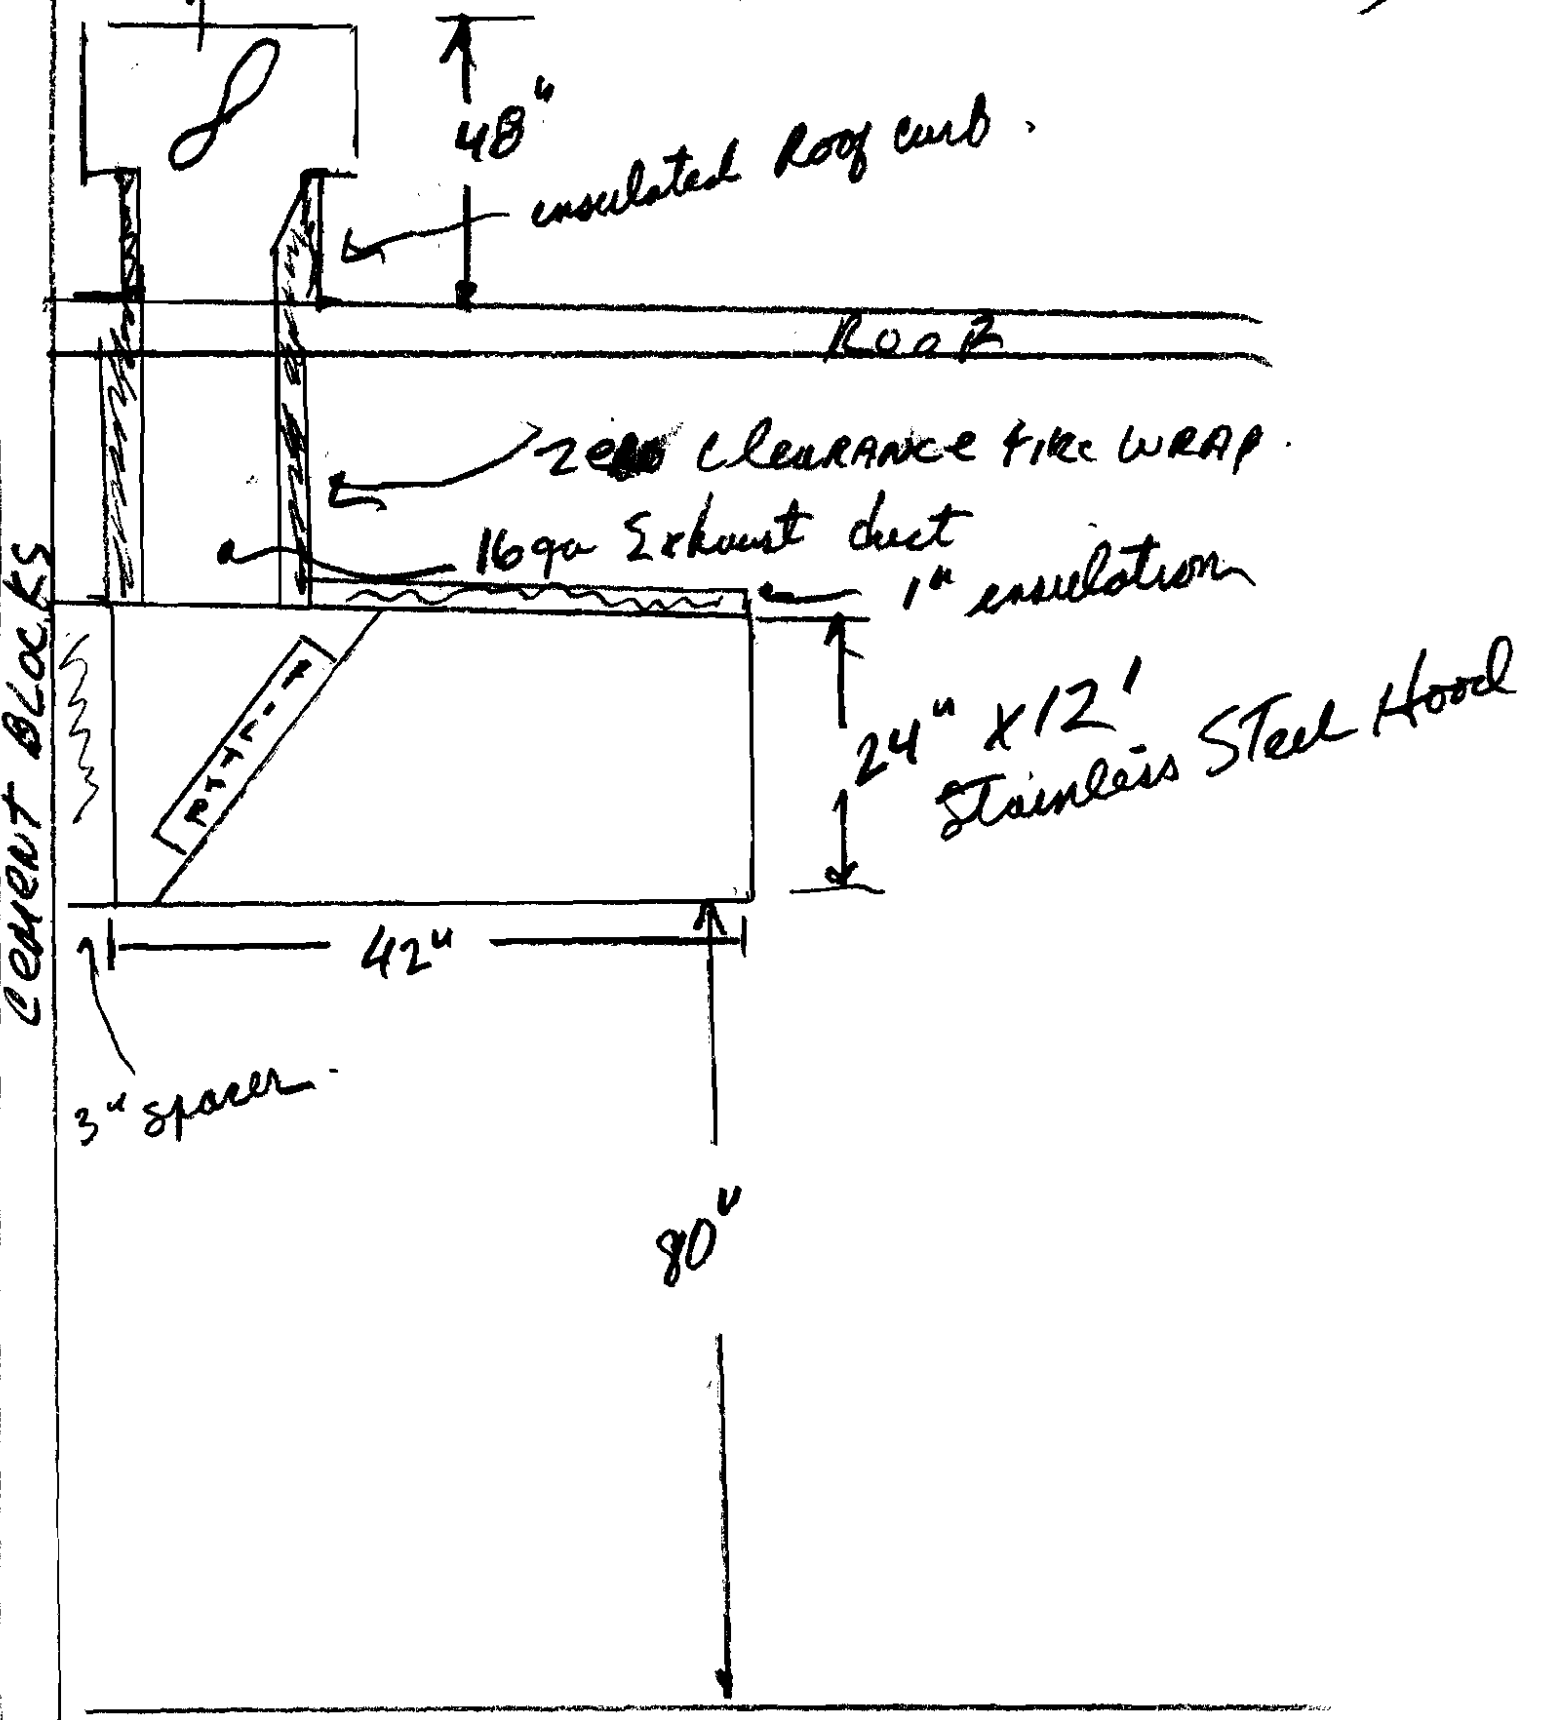 48"
insulated Roof curb.
Roof
zero Clearance fire WRAP.
16ga Exhaust duct
1" insulation
24" x 12'
Stainless Steel Hood
CEMENT BLOCKS
FILTER
42"
3" spacer
80"